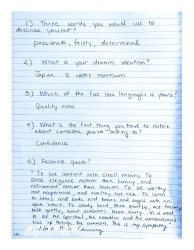 1.) Three words you would use to
describe yourself?
passionate, feisty, determined
2.) What is your dream vacation?
Japan 2 weeks minimum
3.) Which of the five love languages is yours?
Quality time
4.) What's the first thing you tend to notice
about someone you're talking to?
Confidence
5.) Favorite quote?
"To live content with small means. To
seek elegance rather than luxury, and
refinement rather than fashion. To be worthy
not respectable, and wealthy, not rich. To listen
to stars and birds and babes and sages with an
open heart. To study hard, think quietly, act frankly
talk gently, await occasions, hurry never. In a word
to let the spiritual, the unbidden and the unconscious
rise up through the common. This is my symphony."